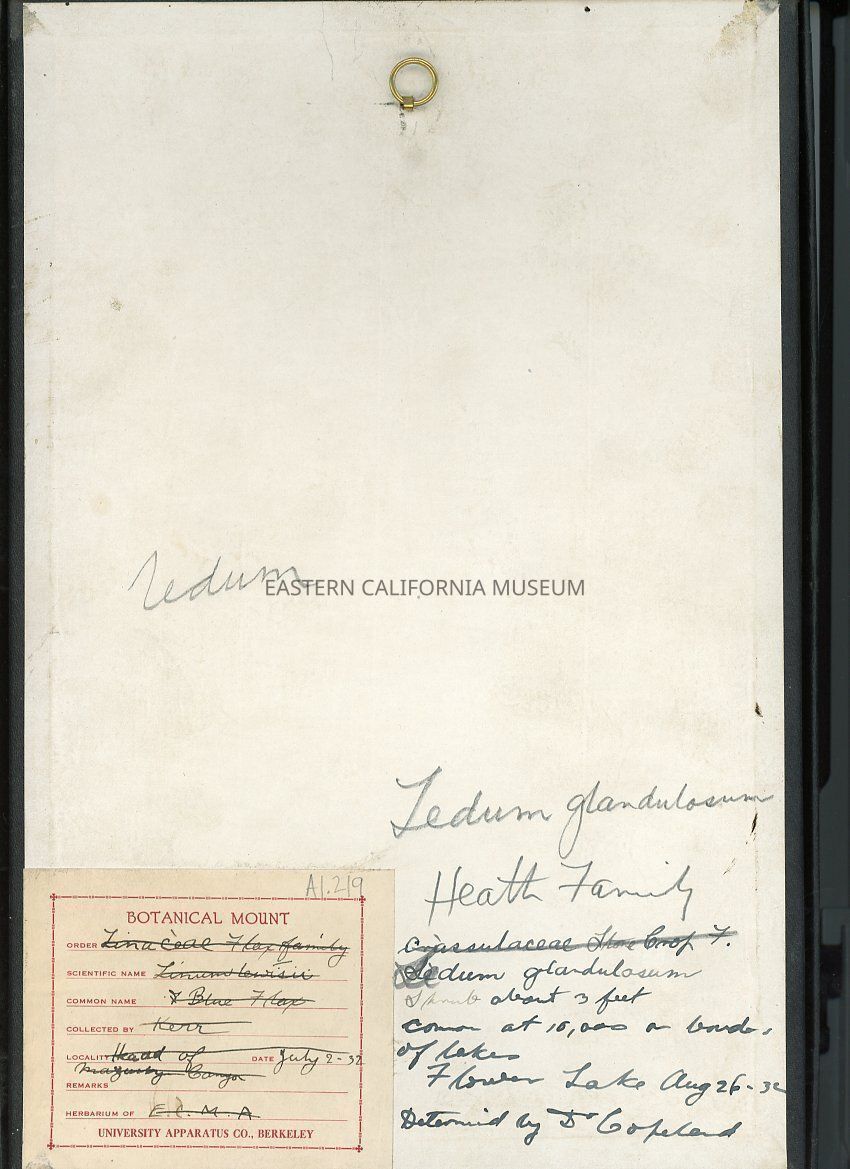 Ledum
EASTERN CALIFORNIA MUSEUM
Ledum glandulosum
Heath Family
A1.219
BOTANICAL MOUNT
ORDER Linaceae Flax family
SCIENTIFIC NAME Linum lewisii
COMMON NAME Blue Flax
COLLECTED BY Kerr
LOCALITY Head of DATE July 2-32
Canyon
REMARKS
HERBARIUM OF E.C.M.A
UNIVERSITY APPARATUS CO., BERKELEY
Crassulaceae Stone Crop F.
Ledum glandulosum
Shrub about 3 feet
common at 10,000 on borders
of lakes
Flower Lake Aug 26-32
Determined by Dr Copeland